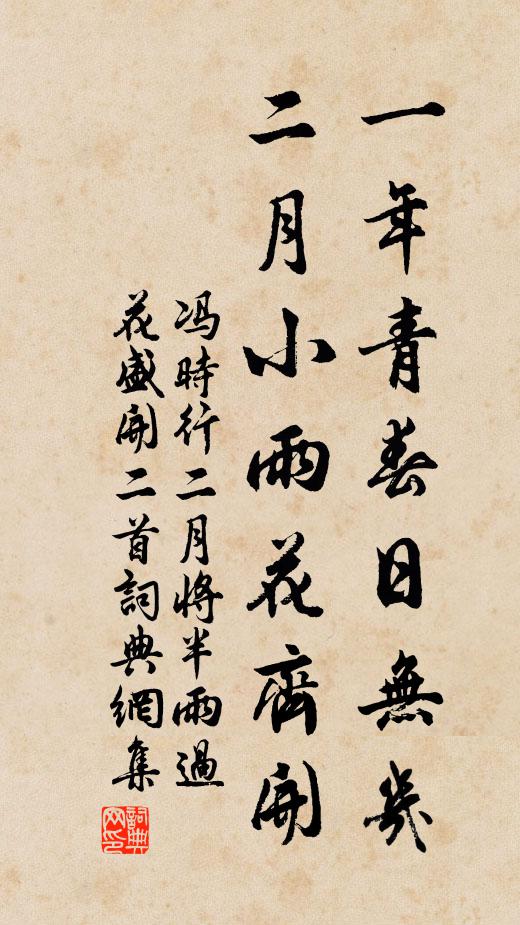 一年青春日無幾
二月小雨花齊開
馮時行二月將半雨過
花盛開二首詞典網集
詞典网印